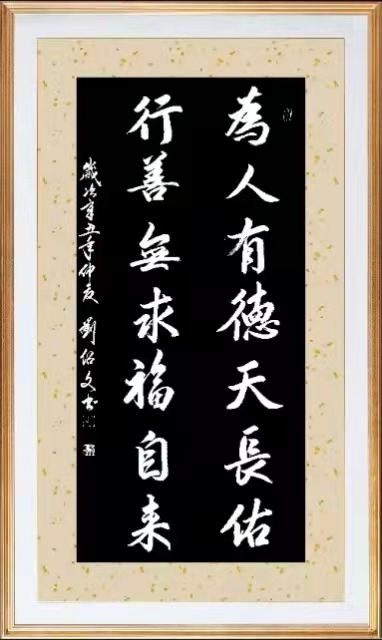 為人有德天長佑
行善無求福自来
歲次辛丑年仲夏 劉紹文书